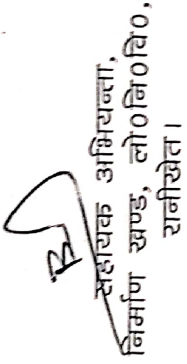 सहायक अभियन्ता,
निर्माण खण्ड, लो०नि०वि०,
रानीखेत।